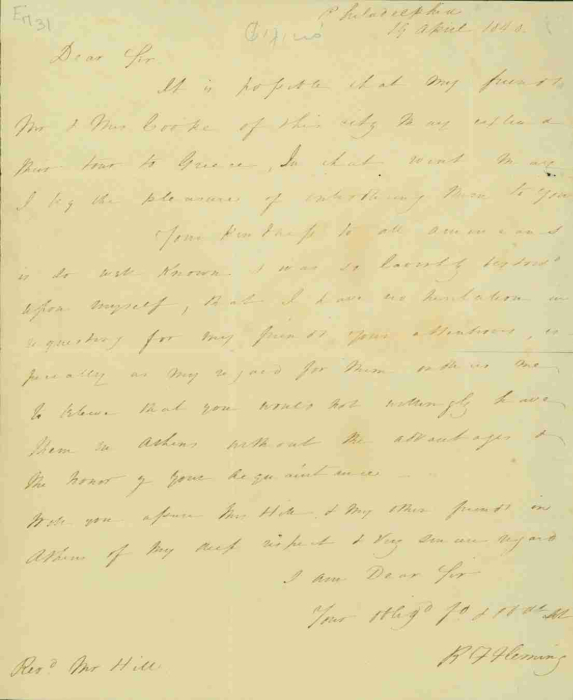 Philadelphia
19 April 1840.
Dear Sir
It is possible that my friends
Mr & Mrs Cooke of this city may extend
their tour to Greece, In that event may
I beg the pleasure of introducing them to you
Your kindness to all Americans
is so well known & was so lavishly bestow'd
upon myself, that I have no hesitation in
requesting for my friends your attentions, es-
pecially as my regard for them induces me
to believe that you would not willingly have
them in Athens without the advantages &
the honor of your acquaintance
Will you assure Mrs Hill & my other friends in
Athens of my deep respect & very sincere regard
I am Dear Sir
Your Oblig'd
R F Fleming
Revd Mr Hill